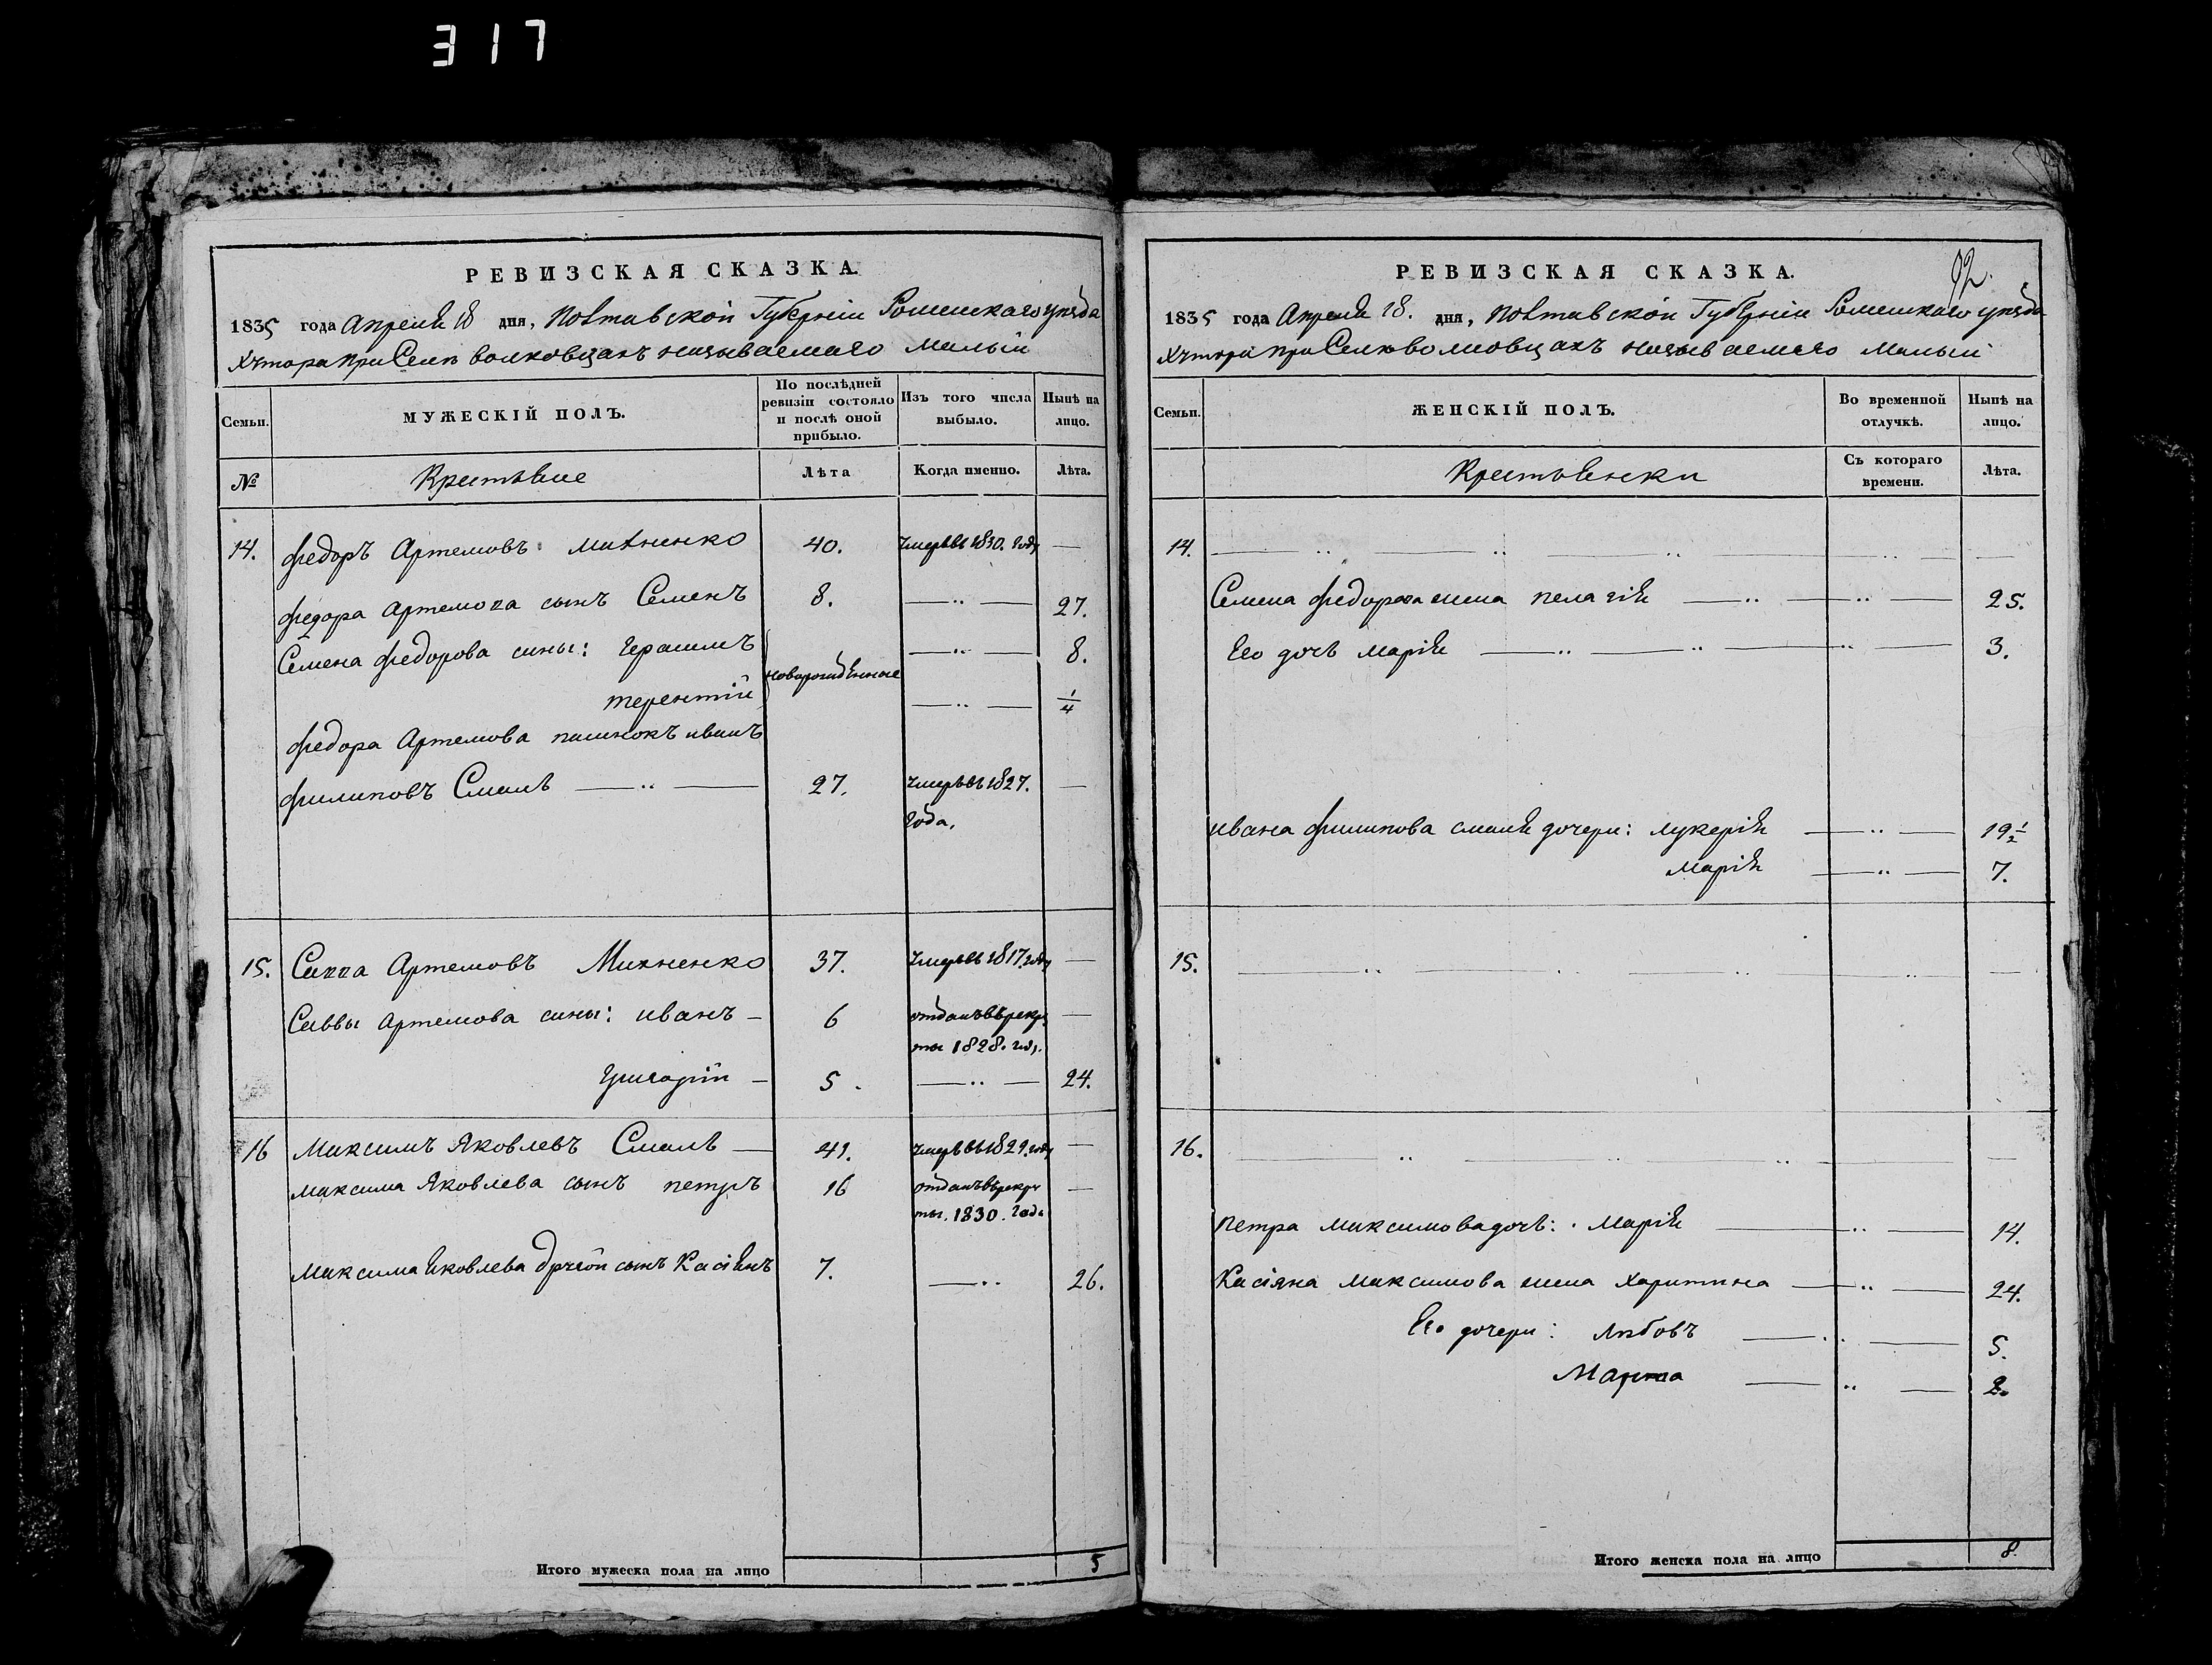 317
РЕВИЗСКАЯ СКАЗКА.
1835 года Апреля 18 дня, Полтавской Губерніи Роменскаго уезда
Хутора при Селе волковцахъ называемаго Малый
Семьи.
МУЖЕСКІЙ ПОЛЪ.
По послѣдней ревизіи состояло и послѣ оной прибыло.
Изъ того числа выбыло.
Нынѣ на лицо.
№
Крестьяне
Лѣта
Когда именно.
Лѣта.
14. Федоръ Артемовъ Михненко 40. Умеръ въ 1830. году —
Федора Артемова сынъ Семенъ 8. — 27.
Семена Федорова сины: Герасимъ — 8.
новорожденные
терентій — 1/4
Федора Артемова пасинокъ иванъ
Филиповъ Смаль — 27. Умеръ въ 1827. —
года.
15. Савва Артемовъ Михненко 37. Умеръ въ 1817. году —
Саввы Артемова сины: иванъ — 6 отданъ въ рекру —
ты 1828. году.
Григорій — 5. — 24.
16 Максимъ Яковлевъ Смаль — 41. Умеръ въ 1829. году —
Максима Яковлева сынъ петръ 16 отданъ въ рекру —
ты. 1830. года
Максима Яковлева другой сынъ Касіянъ 7. — 26.
Итого мужеска пола на лицо 5
92.
РЕВИЗСКАЯ СКАЗКА.
1835 года Апреля 18. дня, Полтавской Губерніи Роменскаго уезда
Хутора при Селе волковцахъ называемаго Малый
Семьи.
ЖЕНСКІЙ ПОЛЪ.
Во временной отлучкѣ.
Нынѣ на лицо.
Крестьянки
Съ котораго времени.
Лѣта.
14. —
Семена Федорова жена пелагія — 25.
Его дочь марія — 3.
ивана Филипова смаля дочери: лукерія — 19 1/2
Марія — 7.
15. —
16. —
петра максимова дочь: Марія — 14.
Касіяна максимова жена Харитина — 24.
Его дочери: любовъ — 5.
Марта — 2.
Итого женска пола на лицо 8.